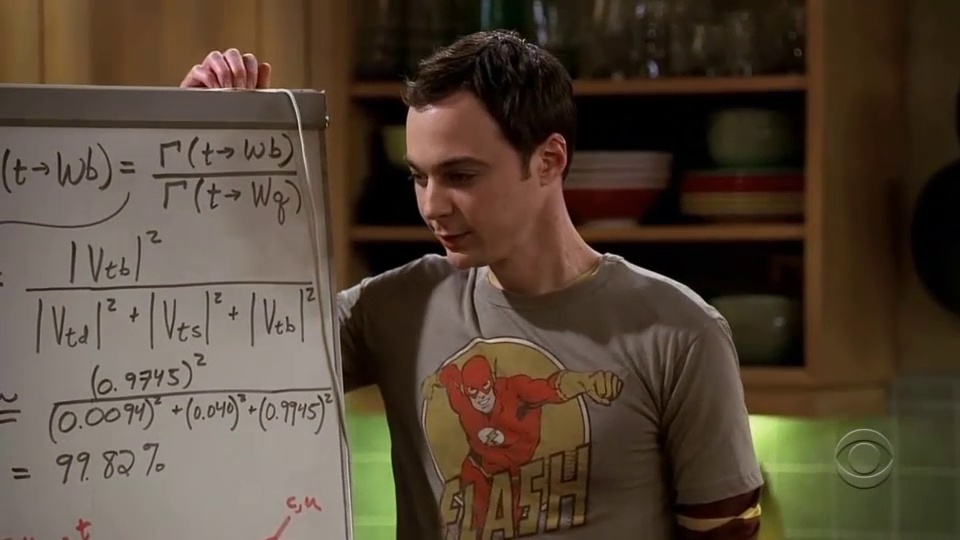 (t→Wb) = Γ(t→Wb) / Γ(t→Wq)
|Vtb|²
|Vtd|² + |Vts|² + |Vtb|²
≃ (0.9745)²
(0.0094)² + (0.040)² + (0.9945)²
= 99.82%
c,u
t
FLASH